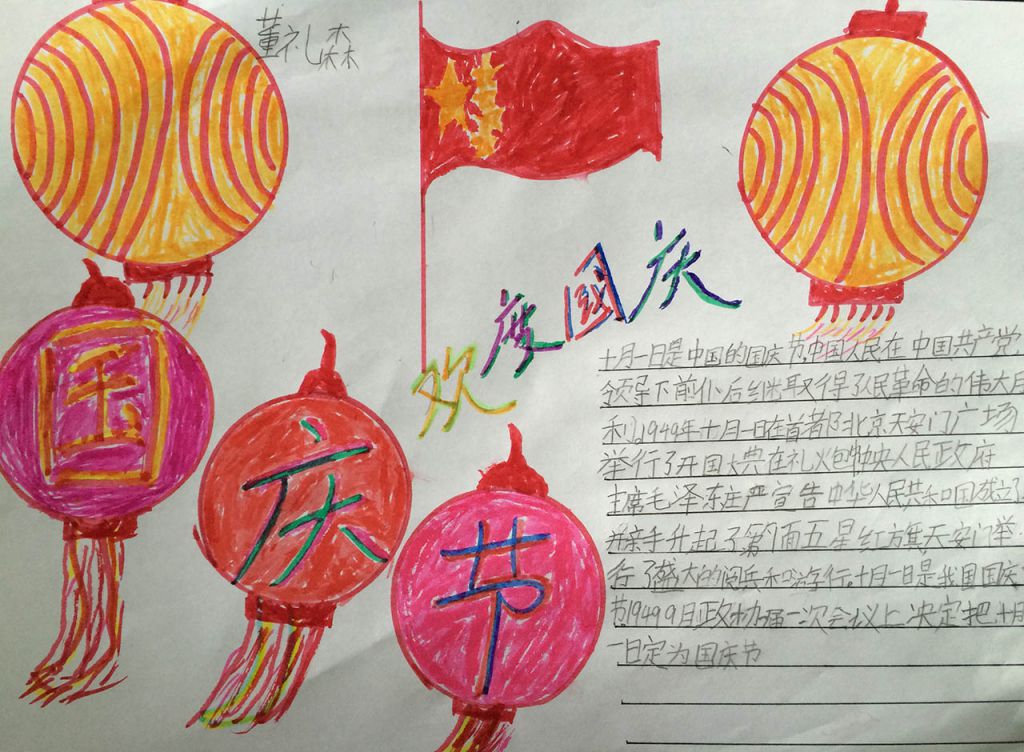 董礼森
欢度國庆
国
庆
节
十月一日是中国的国庆节中国人民在中国共产党
领导下前仆后继取得了人民革命的伟大月
利1949年十月一日在首都北京天安门广场
举行了开国大典在礼火包中央人民政府
主席毛泽东庄严宣告中华人民共和国成立了
并亲手升起了第1面五星红方旗天安门举
行了盛大的阅兵和游行。十月一日是我国国庆
节1949 9月政协届一次会议上决定把十月
一日定为国庆节